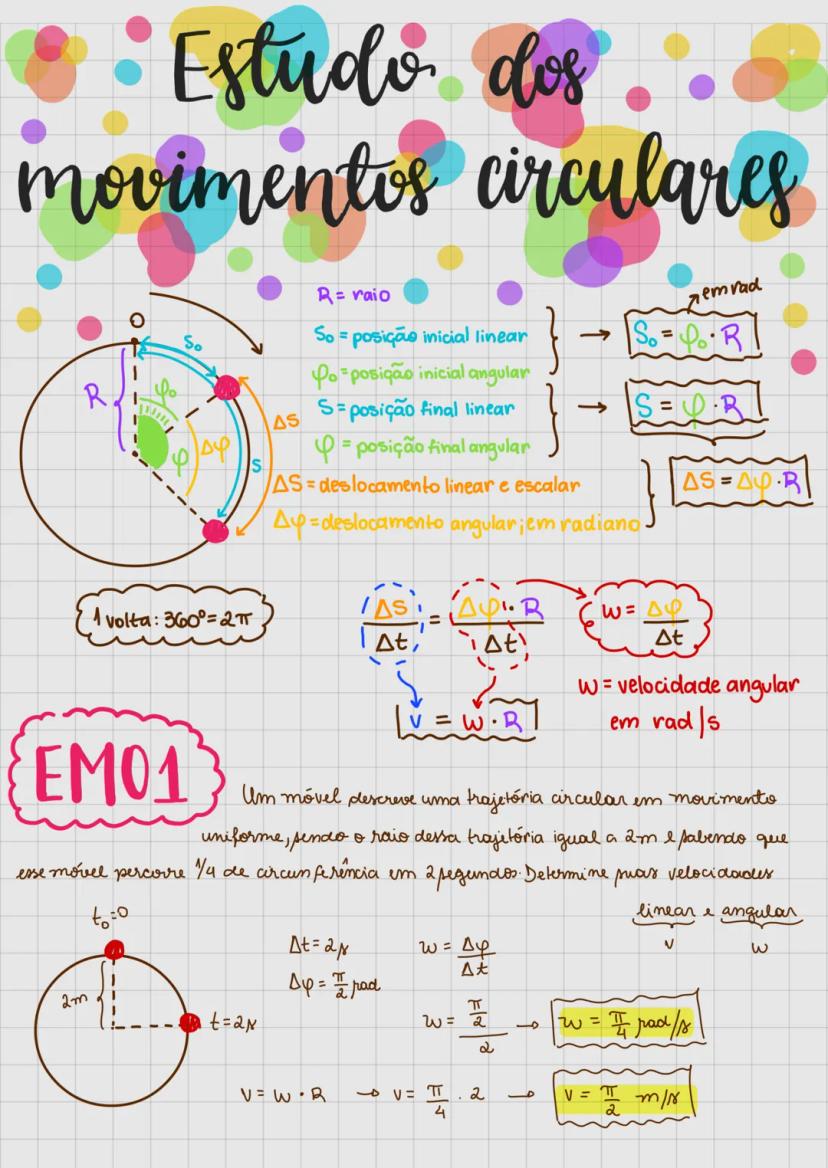 Estudo dos
movimentos circulares
R = raio
S₀ = posição inicial linear
φ₀ = posição inicial angular
S = posição final linear
φ = posição final angular
ΔS = deslocamento linear e escalar
Δφ = deslocamento angular; em radiano
em rad
S₀ = φ₀ · R
S = φ · R
ΔS = Δφ · R
O
S₀
R
φ₀
φ
Δφ
S
ΔS
1 volta: 360° = 2π
Δs/Δt = Δφ · R/Δt
w = Δφ/Δt
v = w · R
w = velocidade angular
em rad/s
EM01
Um móvel descreve uma trajetória circular em movimento
uniforme, sendo o raio dessa trajetória igual a 2m e sabendo que
esse móvel percorre 1/4 de circunferência em 2 segundos. Determine suas velocidades
linear e angular
v w
t₀=0
2m
t=2s
Δt = 2s
Δφ = π/2 rad
w = Δφ/Δt
w = π/2/2 → w = π/4 rad/s
v = w · R → v = π/4 . 2 → v = π/2 m/s